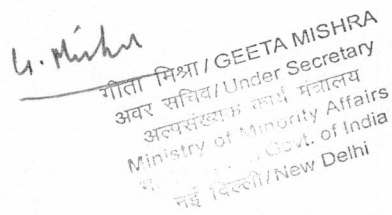 G. Mishra
गीता मिश्रा / GEETA MISHRA
अवर सचिव/Under Secretary
अल्पसंख्यक कार्य मंत्रालय
Ministry of Minority Affairs
Govt. of India
नई दिल्ली/New Delhi